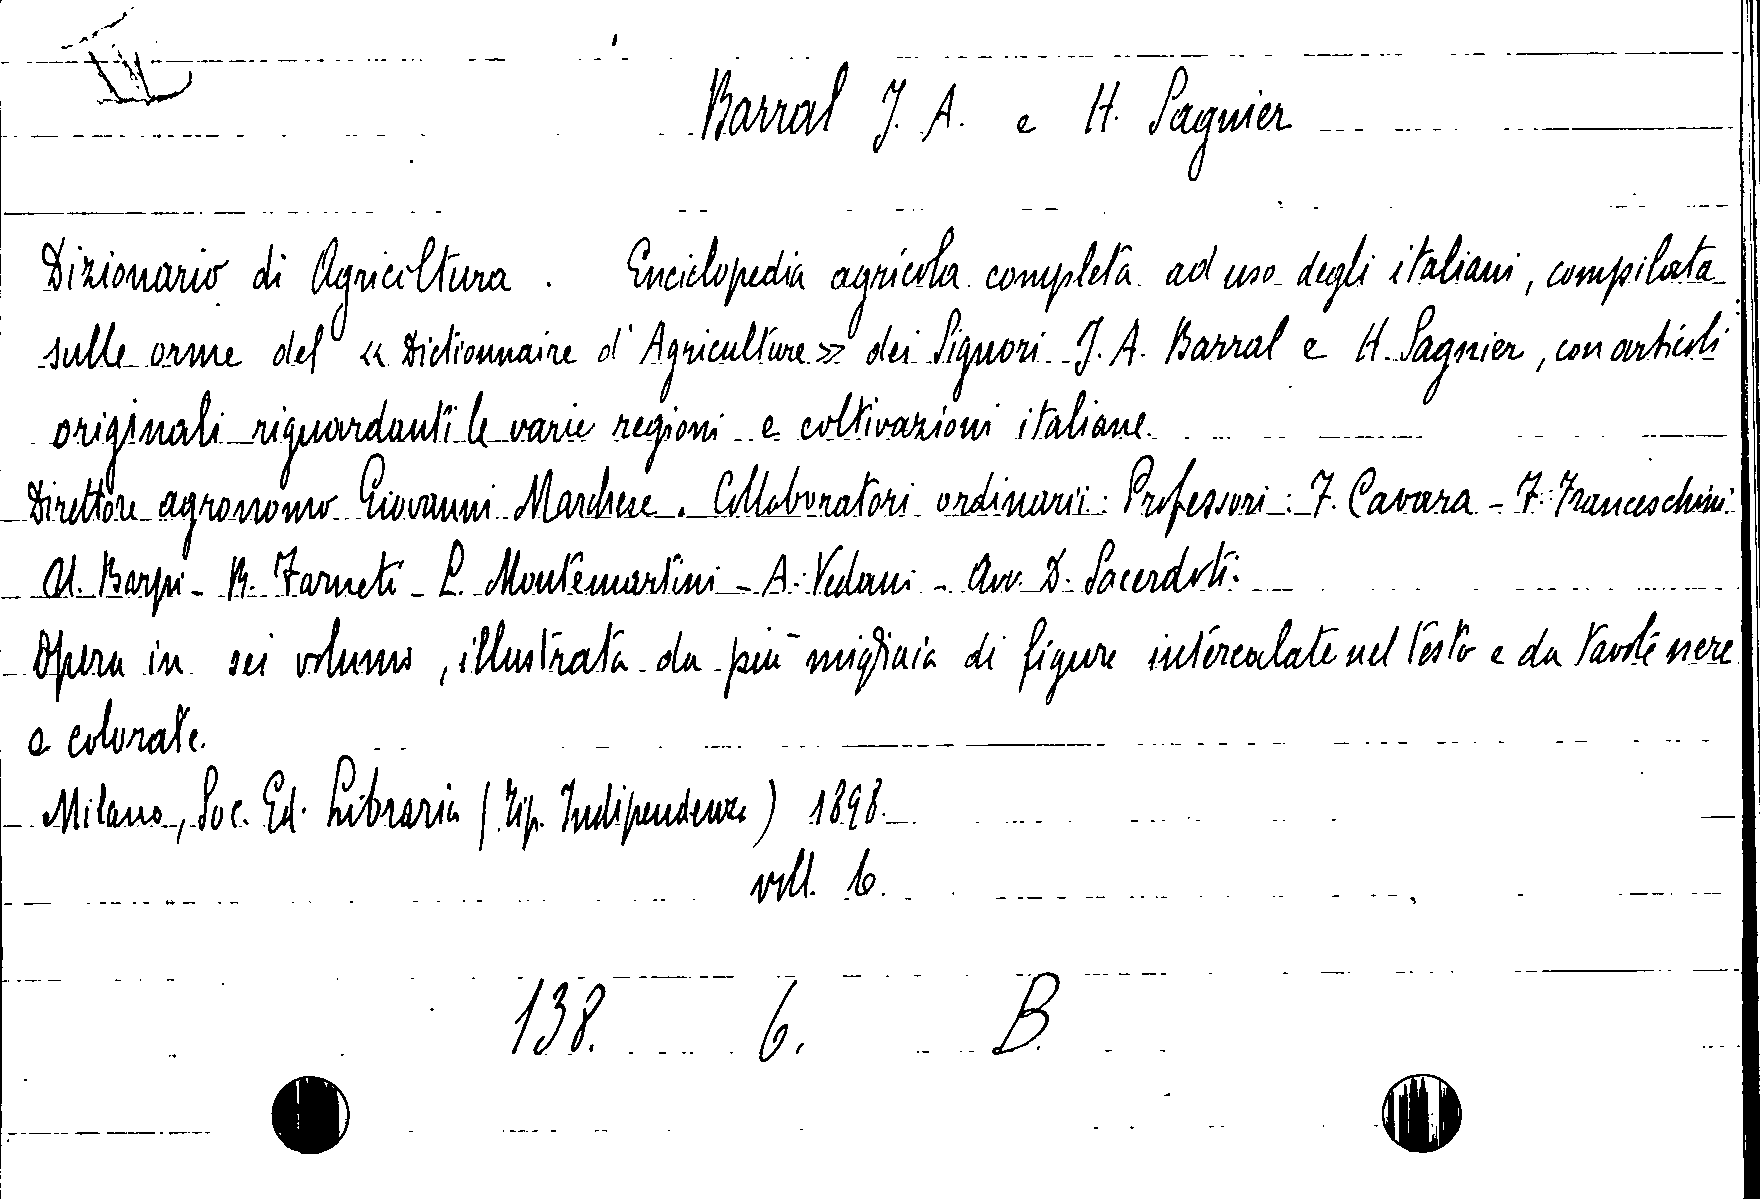 Barral J. A. e H. Sagnier
Dizionario di Agricoltura. Enciclopedia agricola completa ad uso degli italiani, compilata
sulle orme del « Dictionnaire d'Agriculture » dei Signori J. A. Barral e H. Sagnier, con articoli
originali riguardanti le varie regioni e coltivazioni italiane.
Direttore agronomo Giovanni Marchese. Collaboratori ordinarii: Professori: F. Cavara - F. Franceschini
U. Barpi - R. Farneti - L. Montemartini - A. Vedani - Avv. D. Sacerdoti.
Opera in sei volumi, illustrata da più migliaia di figure intercalate nel testo e da tavole nere
e colorate.
Milano, Soc. Ed. Libraria (Tip. Indipendenza) 1898.
voll. 6.
138. 6. B.